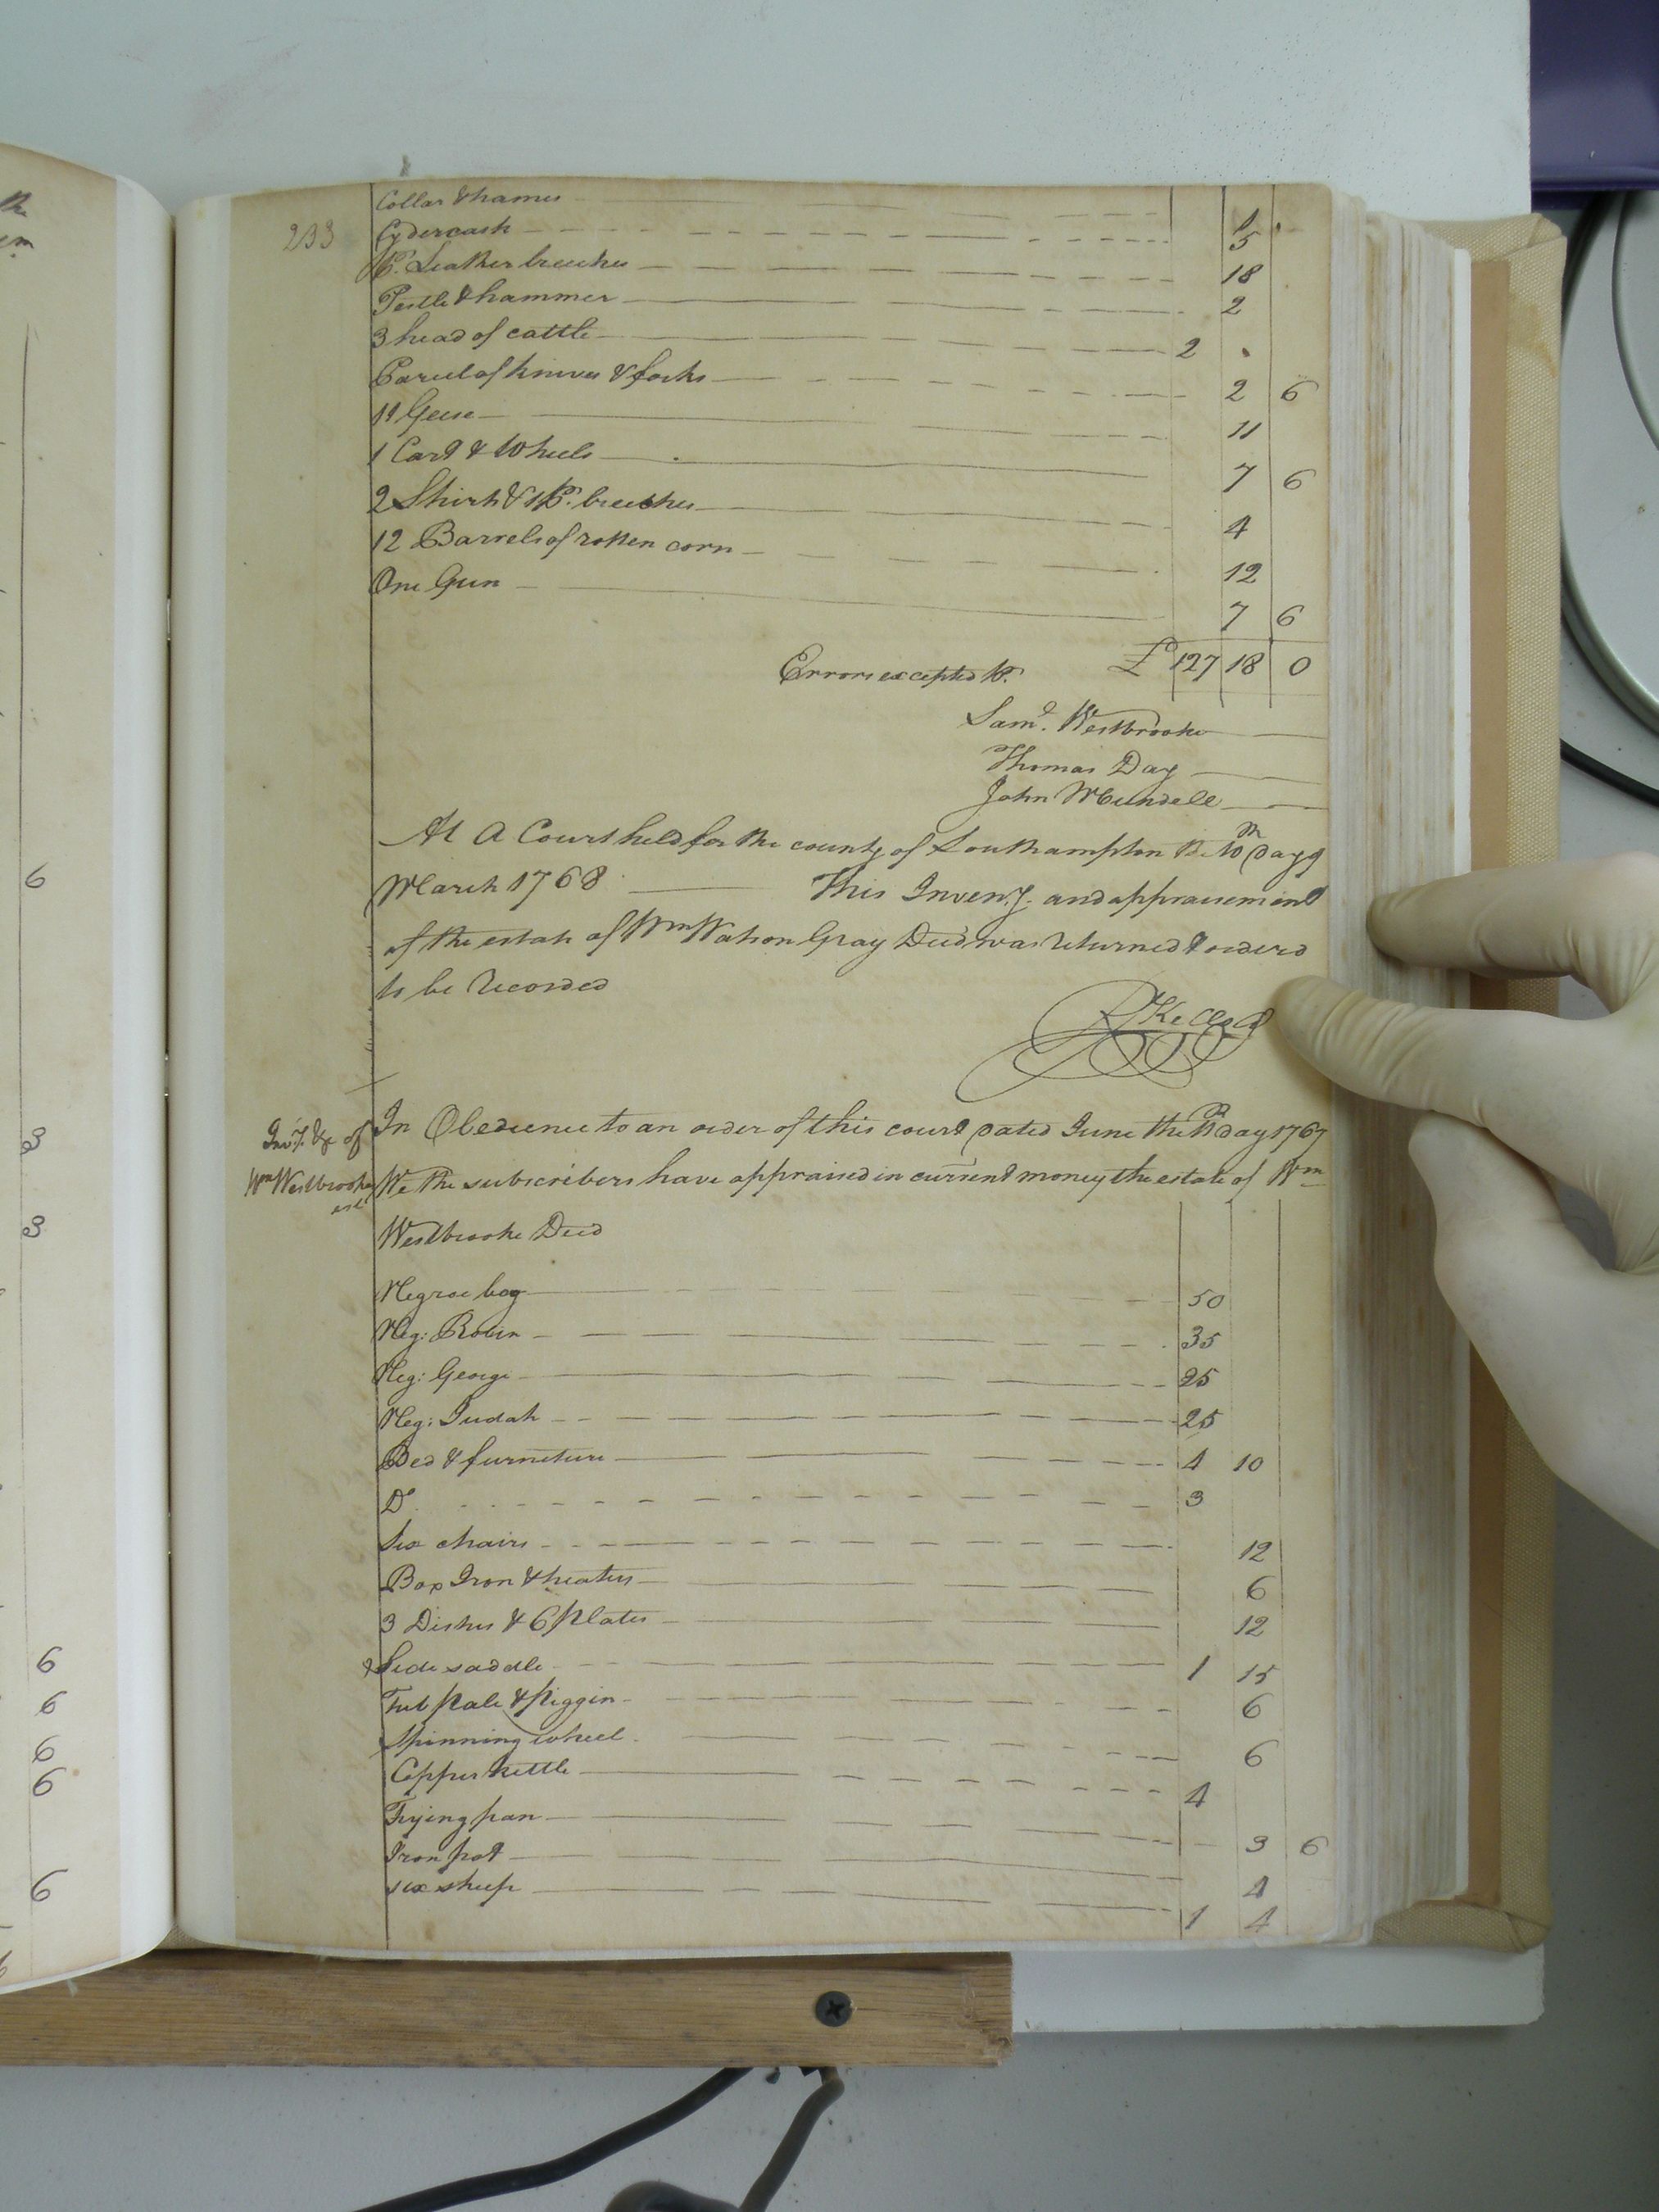 Collar & hames 1
233
Cydercask 5
Pr. Leather breeches 18
Pestle & hammer 2
3 head of cattle 2
Parcel of knives & forks 2 6
11 Geese 11
1 Cart & Wheels 7 6
2 Shirts & 1 Pr. breeches 4
12 Barrels of rotten corn 12
One Gun 7 6
Errors excepted Pr. £ 127 18 0
Saml. Westbrooke
Thomas Day
John Mundell
At A Court held for the county of Southampton the 10th Day of
March 1768 This Inven.y. and appraisement
of the estate of Wm Watson Gray Decd was returned & orderd
to be Recorded
R Kello
Inv.y. &c of
Wm Westbrooke
est
In Obedience to an order of this court dated June the 11th Day 1767
We the subscribers have appraised in current money the estate of Wm
Westbrooke Decd
Negroe boy 50
Neg: Robin 35
Neg: George 25
Neg: Judah 25
Bed & furneture 4 10
Do. 3
Six chairs 12
Box Iron & heaters 6
3 Dishes & 6 Plates 12
Side saddle 1 15
Tub Pale & Piggin 6
Spinning wheel 6
Copper Kettle 4
Frying pan 3 6
Iron pot 4
six sheep 1 4
6
3
3
6
6
6
6
6